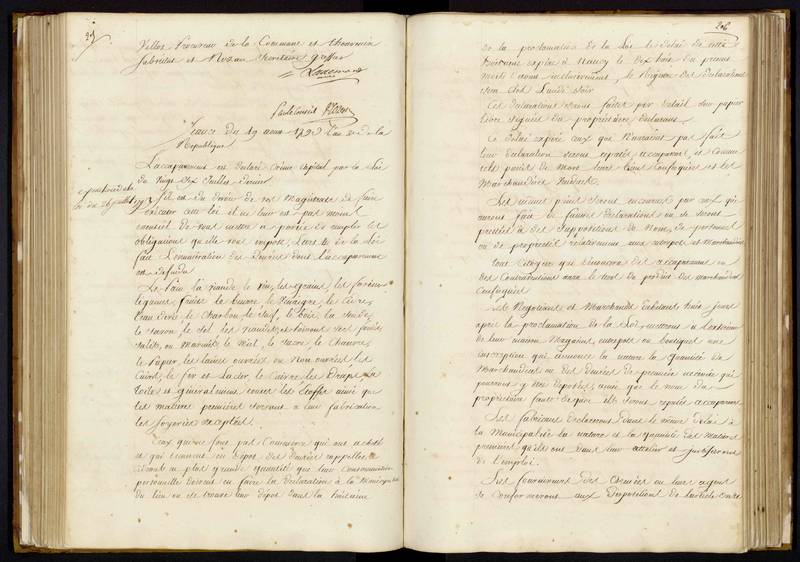 Villot Procureur de la Commune et Thouvenin
fabritus et Mozan Secretaire greffier
par le Conseil
Seance du 19 aout 1793 l'an 2e de la
Republique
L'accaparement est declaré Crime capital par la Loi
du Vingt Six Juillet dernier
Il est du devoir de vos Magistrats de faire
executer cette loi et ne leur est pas moins
essentiel de vous mettre a portée de remplir les
obligations qu'elle vous impose, l'arte de la Loi
fait l'enumeration des denrées dont l'accaparement
est defendu
Le Pain la Viande le vin, les grains, les farines
legumes, fruits le beurre, le Vinaigre, le Cidre,
l'eau de vie, le Charbon, le Suif, le bois, la Soude,
le Savon, le Sel, les Viandes et poissons secs, fumés
Salés, ou Marinés, le Miel, le Sucre, le Chanvre,
le Papier, les laines ouvrées ou Non ouvrées les
Cuirs, le fer et l'acier, le Cuivre, les Draps, la
toile et generalement toutes les étoffes ainsi que
les matieres premieres servant a leur fabrication
les soyeries exceptées.
Ceux qui ne font pas Commerce qui ont acheté
et qui tiennent en depot des denrées rappellées
cidevant en plus grande quantité que leur Consommation
personnelle devront en faire la declaration à la Municipalité
du lieu ou se trouve leur depot dans la huitaine
206
de la proclamation de la Loi le delai de cette
huitaine expire a Nancy le dix huit du present
mois
sera clos Lundi soir
Ces declarations seront faites par detail sur papier
libre signées du proprietaire declarant
Ce delai expiré ceux qui N'auraient pas fait
leur declaration seront reputés accapareurs, et comme
tels punis de Mort, leurs biens Confisqués et les
Marchandises
Les memes peines seront encourues par ceux qui
auront fait de fausses declarations ou se seront
pretées à des Suppositions de Noms, de personnes
ou de proprietés relativement aux entrepots et Marchandises
tout Citoyen qui denoncera des accaparemens ou
des Contraventions aura le tiers du produit des marchandises
Confisquées
Les Negotians et Marchands debitant huit jours
apres la proclamation de la Loi mettrons a l'exterieur
de leur maison Magasin, entrepots ou boutiques une
inscription qui annonce la nature la quantité de
Marchandises ou des denrées de premiere necessité qui
pourront y être deposées, ainsi que le nom du
proprietaire faute de quoi ils seront reputés accapareurs
Les fabricans declareront dans le même delai à
la Municipalité la nature et la quantité des matieres
premieres qu'ils ont dans leur attelier et justifierons
de l'emploi.
Les fournisseurs des Armées ou leurs agens
se conformeront aux dispositions de l'article onze